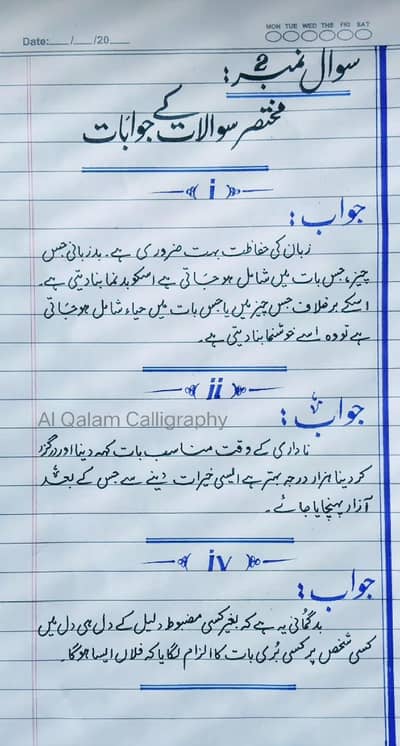 MON TUE WED THS FRI SAT
Date:___/___/20___
سوال نمبر 2:
مختصر سوالات کے جوابات
i
جواب:
زبان کی حفاظت بہت ضروری ہے۔ بدزبانی جس
چیز، جس بات میں شامل ہو جاتی ہے اسکو بدنما بنا دیتی ہے۔
اسکے برخلاف جس چیز میں یا جس بات میں حیاء شامل ہو جاتی
ہے تو وہ اسے خوشنما بنا دیتی ہے۔
ii
جواب:
Al Qalam Calligraphy
ناداری کے وقت مناسب بات کہہ دینا اور درگزر
کر دینا ہزار درجہ بہتر ہے ایسی خیرات دینے سے جس کے بعد
آزار پہنچایا جائے۔
iv
جواب:
بدگمانی یہ ہے کہ بغیر کسی مضبوط دلیل کے دل ہی دل میں
کسی شخص پر کسی بُری بات کا الزام لگایا کہ فلاں ایسا ہوگا۔